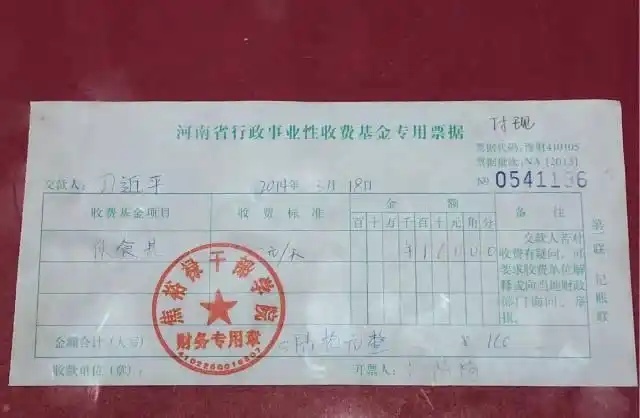 河南省行政事业性收费基金专用票据
付现
票据代码:豫财410105
票据批次:NA [2013]
№ 0541196
交款人: 习近平 2014年 3月 18日
收费基金项目 收费标准 金额 备注
百 十 万 千 百 十 元 角 分
伙食费 元/天 ¥ 1 6 0 0 0
交款人若对收费有疑问,可要求收费单位解释或向当地财政部门询问、举报。
第一联 记账联
焦裕禄干部学院
财务专用章
金额合计(大写) 陆拾元整 ¥ 160
收款单位(章): 开票人: